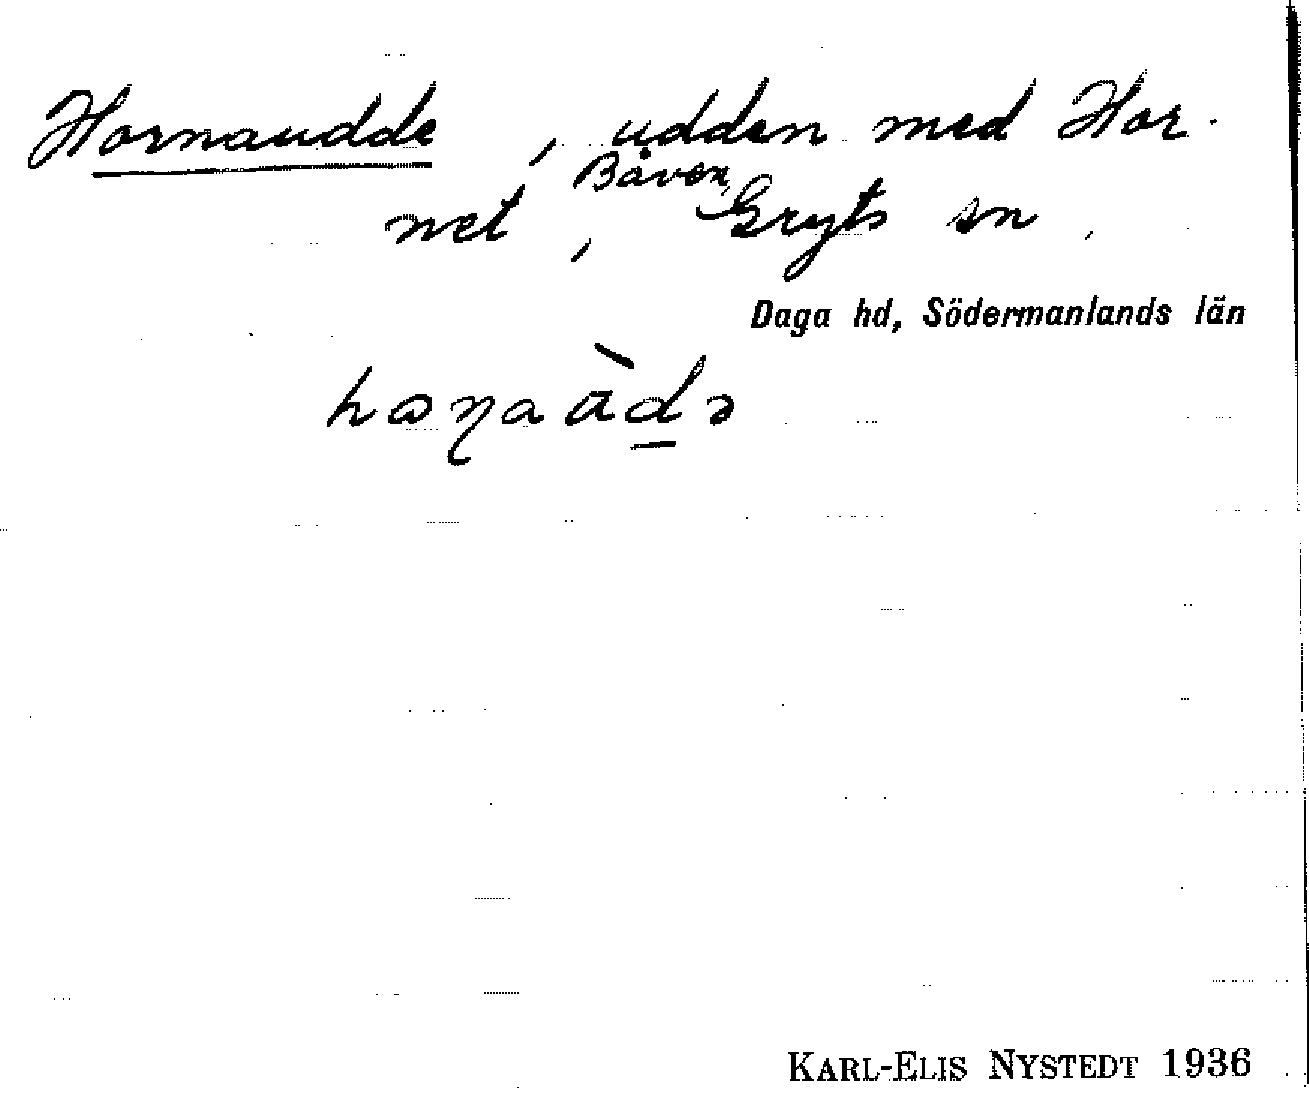 Hornaudde, udden med Hor-
net, Båven, Gryts sn,
Daga hd, Södermanlands län
KARL-ELIS NYSTEDT 1936